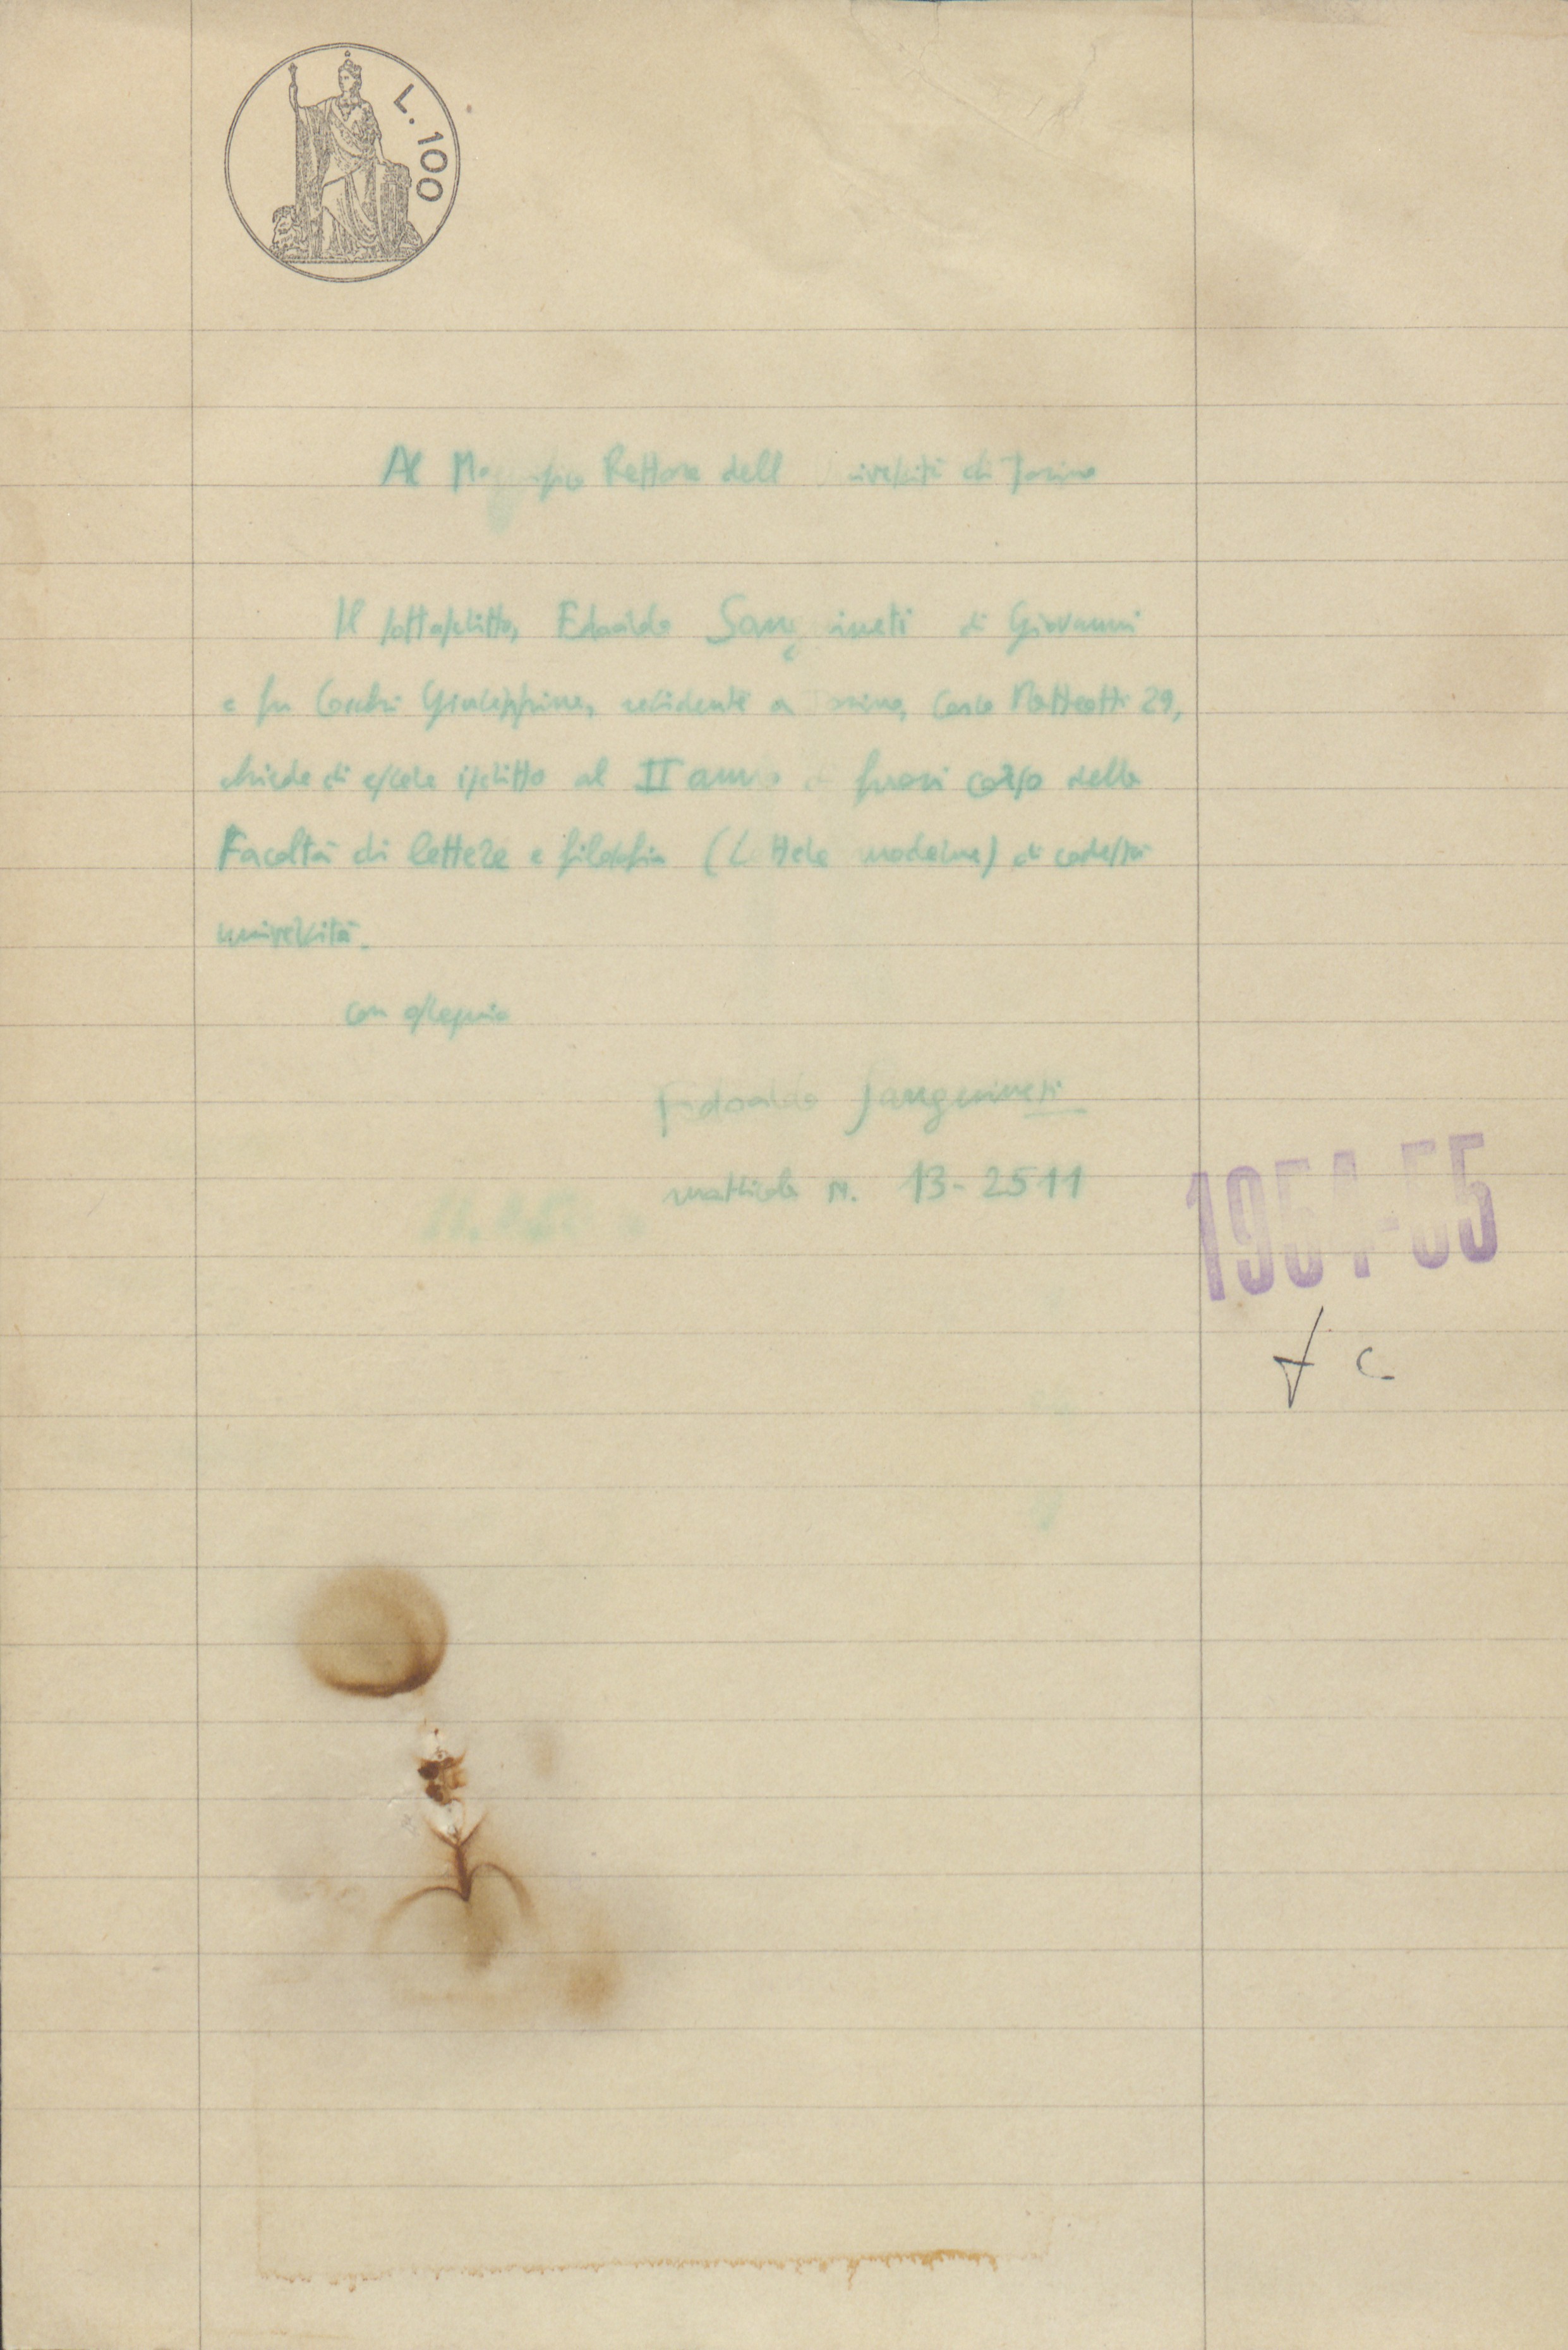 L. 100
Al Magnifico Rettore dell' Università di Torino
Il sottoscritto, Edoardo Sanguineti di Giovanni
e fu Cocchi Giuseppina, residente a Torino, corso Matteotti 29,
chiede di essere iscritto al II anno di fuori corso della
Facoltà di lettere e filosofia (Lettere moderne) di codesta
università.
con ossequio
Edoardo Sanguineti
matricola N. 13-2511
1954-55
f c